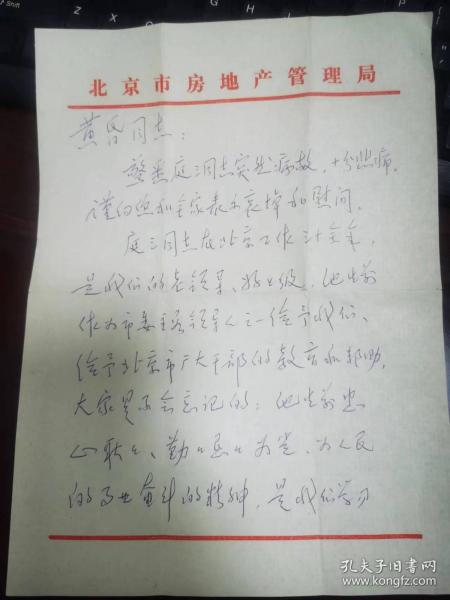 北京市房地产管理局
黄昏同志：
惊悉庭三同志突然病故，十分悲痛。
谨向您和全家表示哀悼和慰问。
庭三同志在北京工作三十余年，
是我们的老领导、好上级，他生前
作为市委主要领导人之一给予我们、
给予北京市广大干部的教育和帮助，
大家是不会忘记的；他生前忠
心耿耿、勤勤恳恳为党、为人民
的事业奋斗的精神，是我们学习
孔夫子旧书网
www.kongfz.com